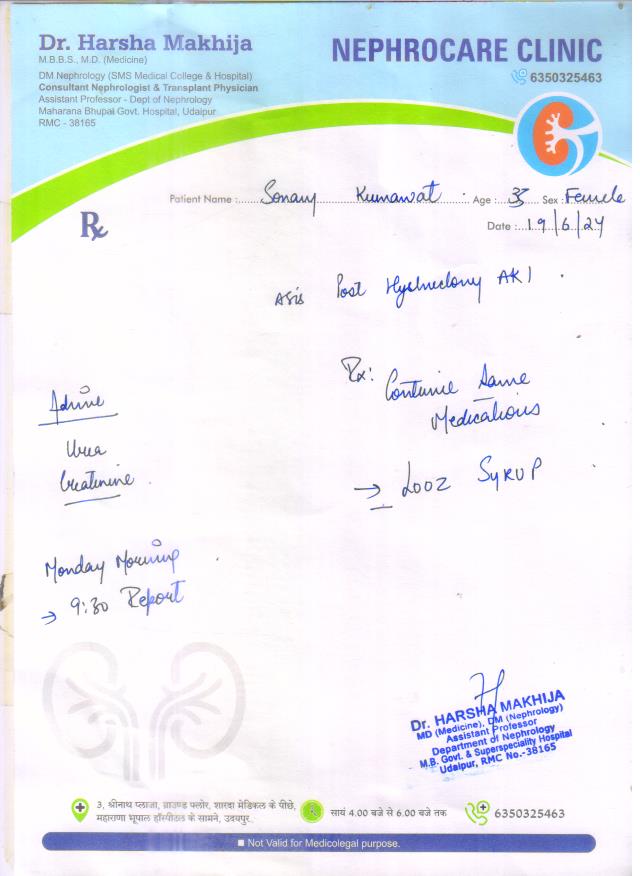 Dr. Harsha Makhija
M.B.B.S., M.D. (Medicine)
DM Nephrology (SMS Medical College & Hospital)
Consultant Nephrologist & Transplant Physician
Assistant Professor - Dept of Nephrology
Maharana Bhupal Govt. Hospital, Udaipur
RMC - 38165
NEPHROCARE CLINIC
6350325463
Patient Name : Kumawat Age : 35 Sex : Female
Rx
Date : 19/6/24
Post AKI
Rx:
Continue Same
Medications
→ Looz SYRUP
Advise
Urea
Creatinine
Monday Morning
→ 9:30 Report
Dr. HARSHA MAKHIJA
MD (Medicine), DM (Nephrology)
Assistant Professor
Department of Nephrology
M.B. Govt. & Superspeciality Hospital
Udaipur, RMC No.-38165
3, श्रीनाथ प्लाजा, ग्राउण्ड फ्लोर, शारदा मेडिकल के पीछे,
महाराणा भूपाल हॉस्पीटल के सामने, उदयपुर
सायं 4.00 बजे से 6.00 बजे तक
6350325463
Not Valid for Medicolegal purpose.